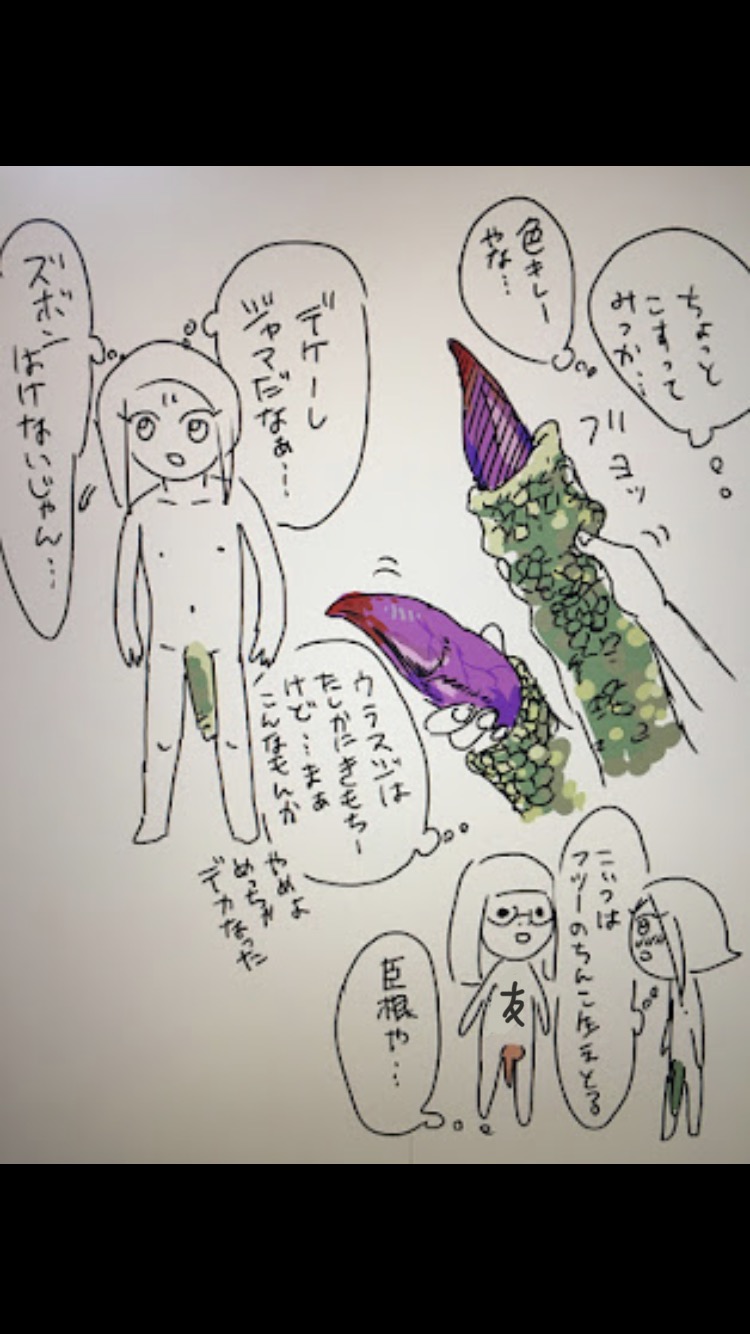 ちょっと
こすって
みっか…
色キレー
やな…
ブリ
ヨッ
デケーし
ジャマだなぁ…
ズボン
はけないじゃん…
ウラスジは
たしかにきもちー
けど…まぁ
こんなもんか
やめよ
めっちゃ
デカなった
こいつは
フツーのちんこ生えとる
友
巨根や…